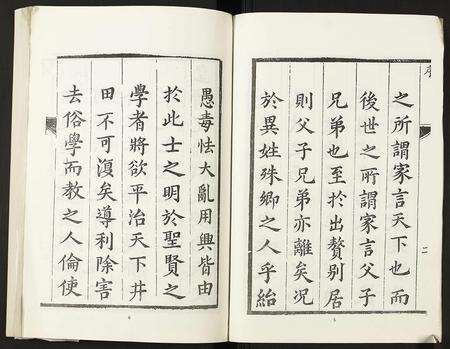 之所謂家言天下也而
後世之所謂家言父子
兄弟也至於出贅別居
則父子兄弟亦離矣況
於異姓殊鄉之人乎紿
愚毒怯大亂用興皆由
於此士之明於聖賢之
學者將欲平治天下井
田不可復矣導利除害
去俗學而教之人倫使
二